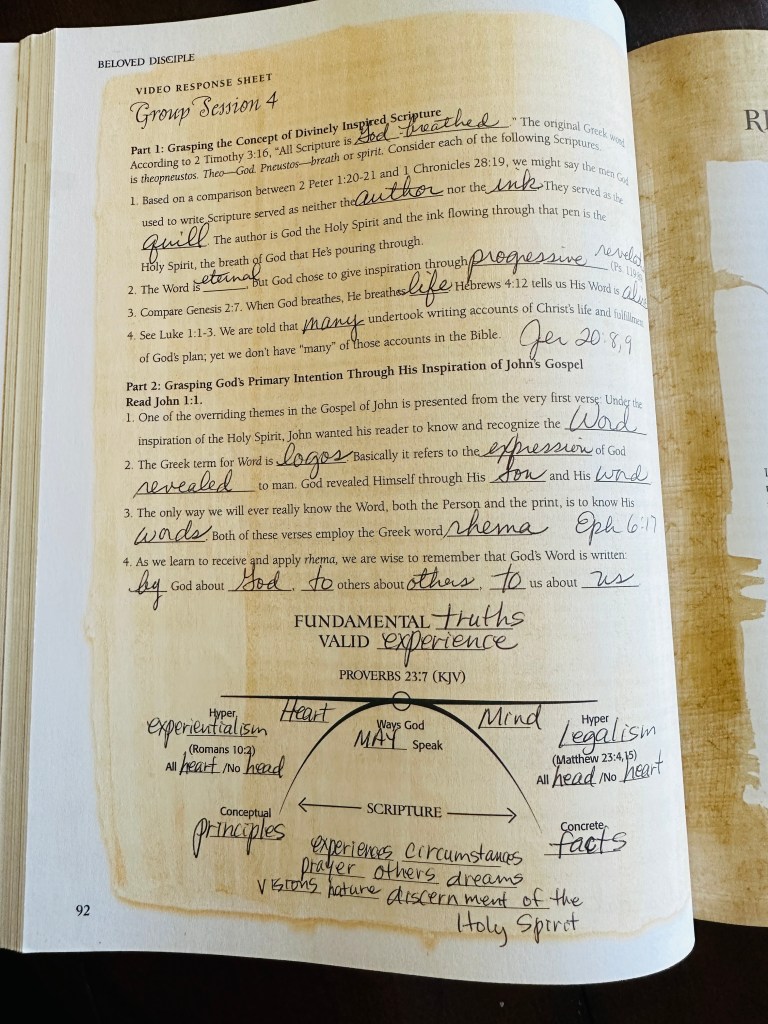 BELOVED DISCIPLE
VIDEO RESPONSE SHEET
Group Session 4
Part 1: Grasping the Concept of Divinely Inspired Scripture
According to 2 Timothy 3:16, "All Scripture is God-breathed." The original Greek word
is theopneustos. Theo—God. Pneustos—breath or spirit. Consider each of the following Scriptures.
1. Based on a comparison between 2 Peter 1:20-21 and 1 Chronicles 28:19, we might say the men God
used to write Scripture served as neither the author nor the ink. They served as the
quill. The author is God the Holy Spirit and the ink flowing through that pen is the
Holy Spirit, the breath of God that He's pouring through.
2. The Word is eternal, but God chose to give inspiration through progressive
(Ps. 119
3. Compare Genesis 2:7. When God breathes, He breathes life. Hebrews 4:12 tells us His Word is
4. See Luke 1:1-3. We are told that many undertook writing accounts of Christ's life and fulfillment
of God's plan; yet we don't have "many" of those accounts in the Bible. Jer 20:8,9
Part 2: Grasping God's Primary Intention Through His Inspiration of John's Gospel
Read John 1:1.
1. One of the overriding themes in the Gospel of John is presented from the very first verse: Under the
inspiration of the Holy Spirit, John wanted his reader to know and recognize the Word
2. The Greek term for Word is logos. Basically it refers to the expression of God
revealed to man. God revealed Himself through His Son and His word
3. The only way we will ever really know the Word, both the Person and the print, is to know His
words. Both of these verses employ the Greek word rhema Eph 6:17
4. As we learn to receive and apply rhema, we are wise to remember that God's Word is written:
by God about God, to others about others, to us about us
FUNDAMENTAL truths
VALID experience
PROVERBS 23:7 (KJV)
Heart Mind
Hyper
experientialism
(Romans 10:2)
All heart/No head
Ways God
MAY Speak
Hyper
Legalism
(Matthew 23:4,15)
All head/No heart
SCRIPTURE
Conceptual
principles
Concrete
facts
experiences circumstances
prayer others dreams
visions nature discernment of the
Holy Spirit
92
R